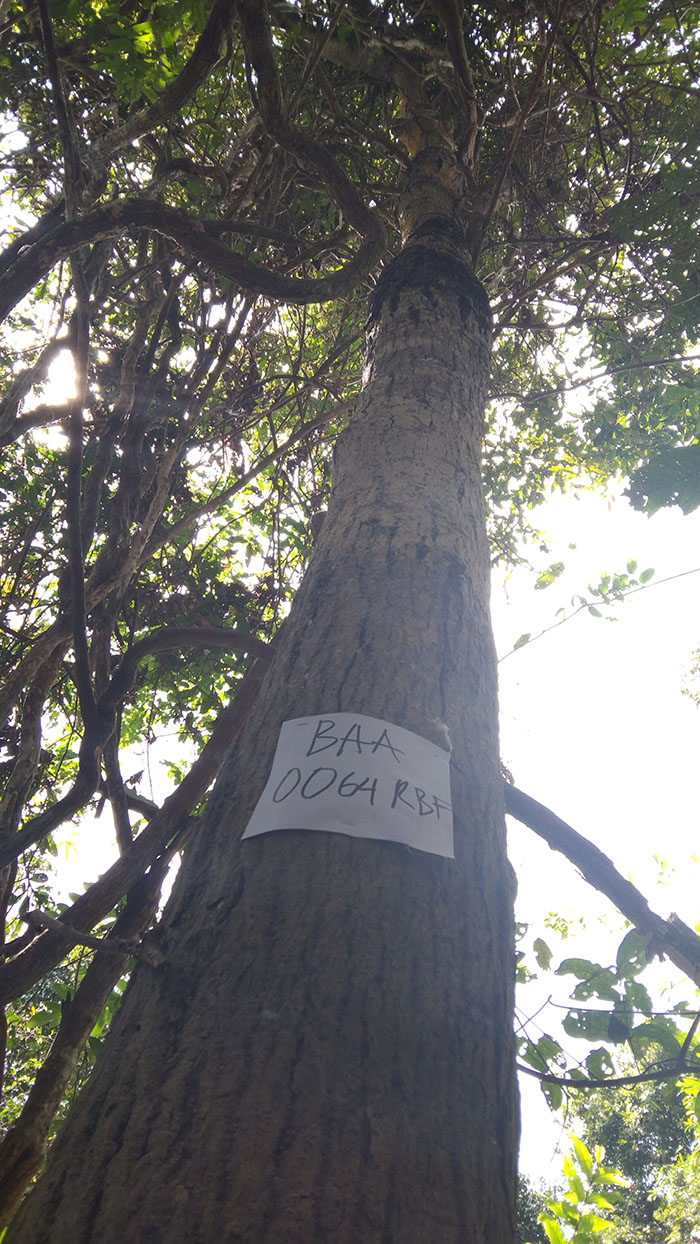 BAA
0064 RBF